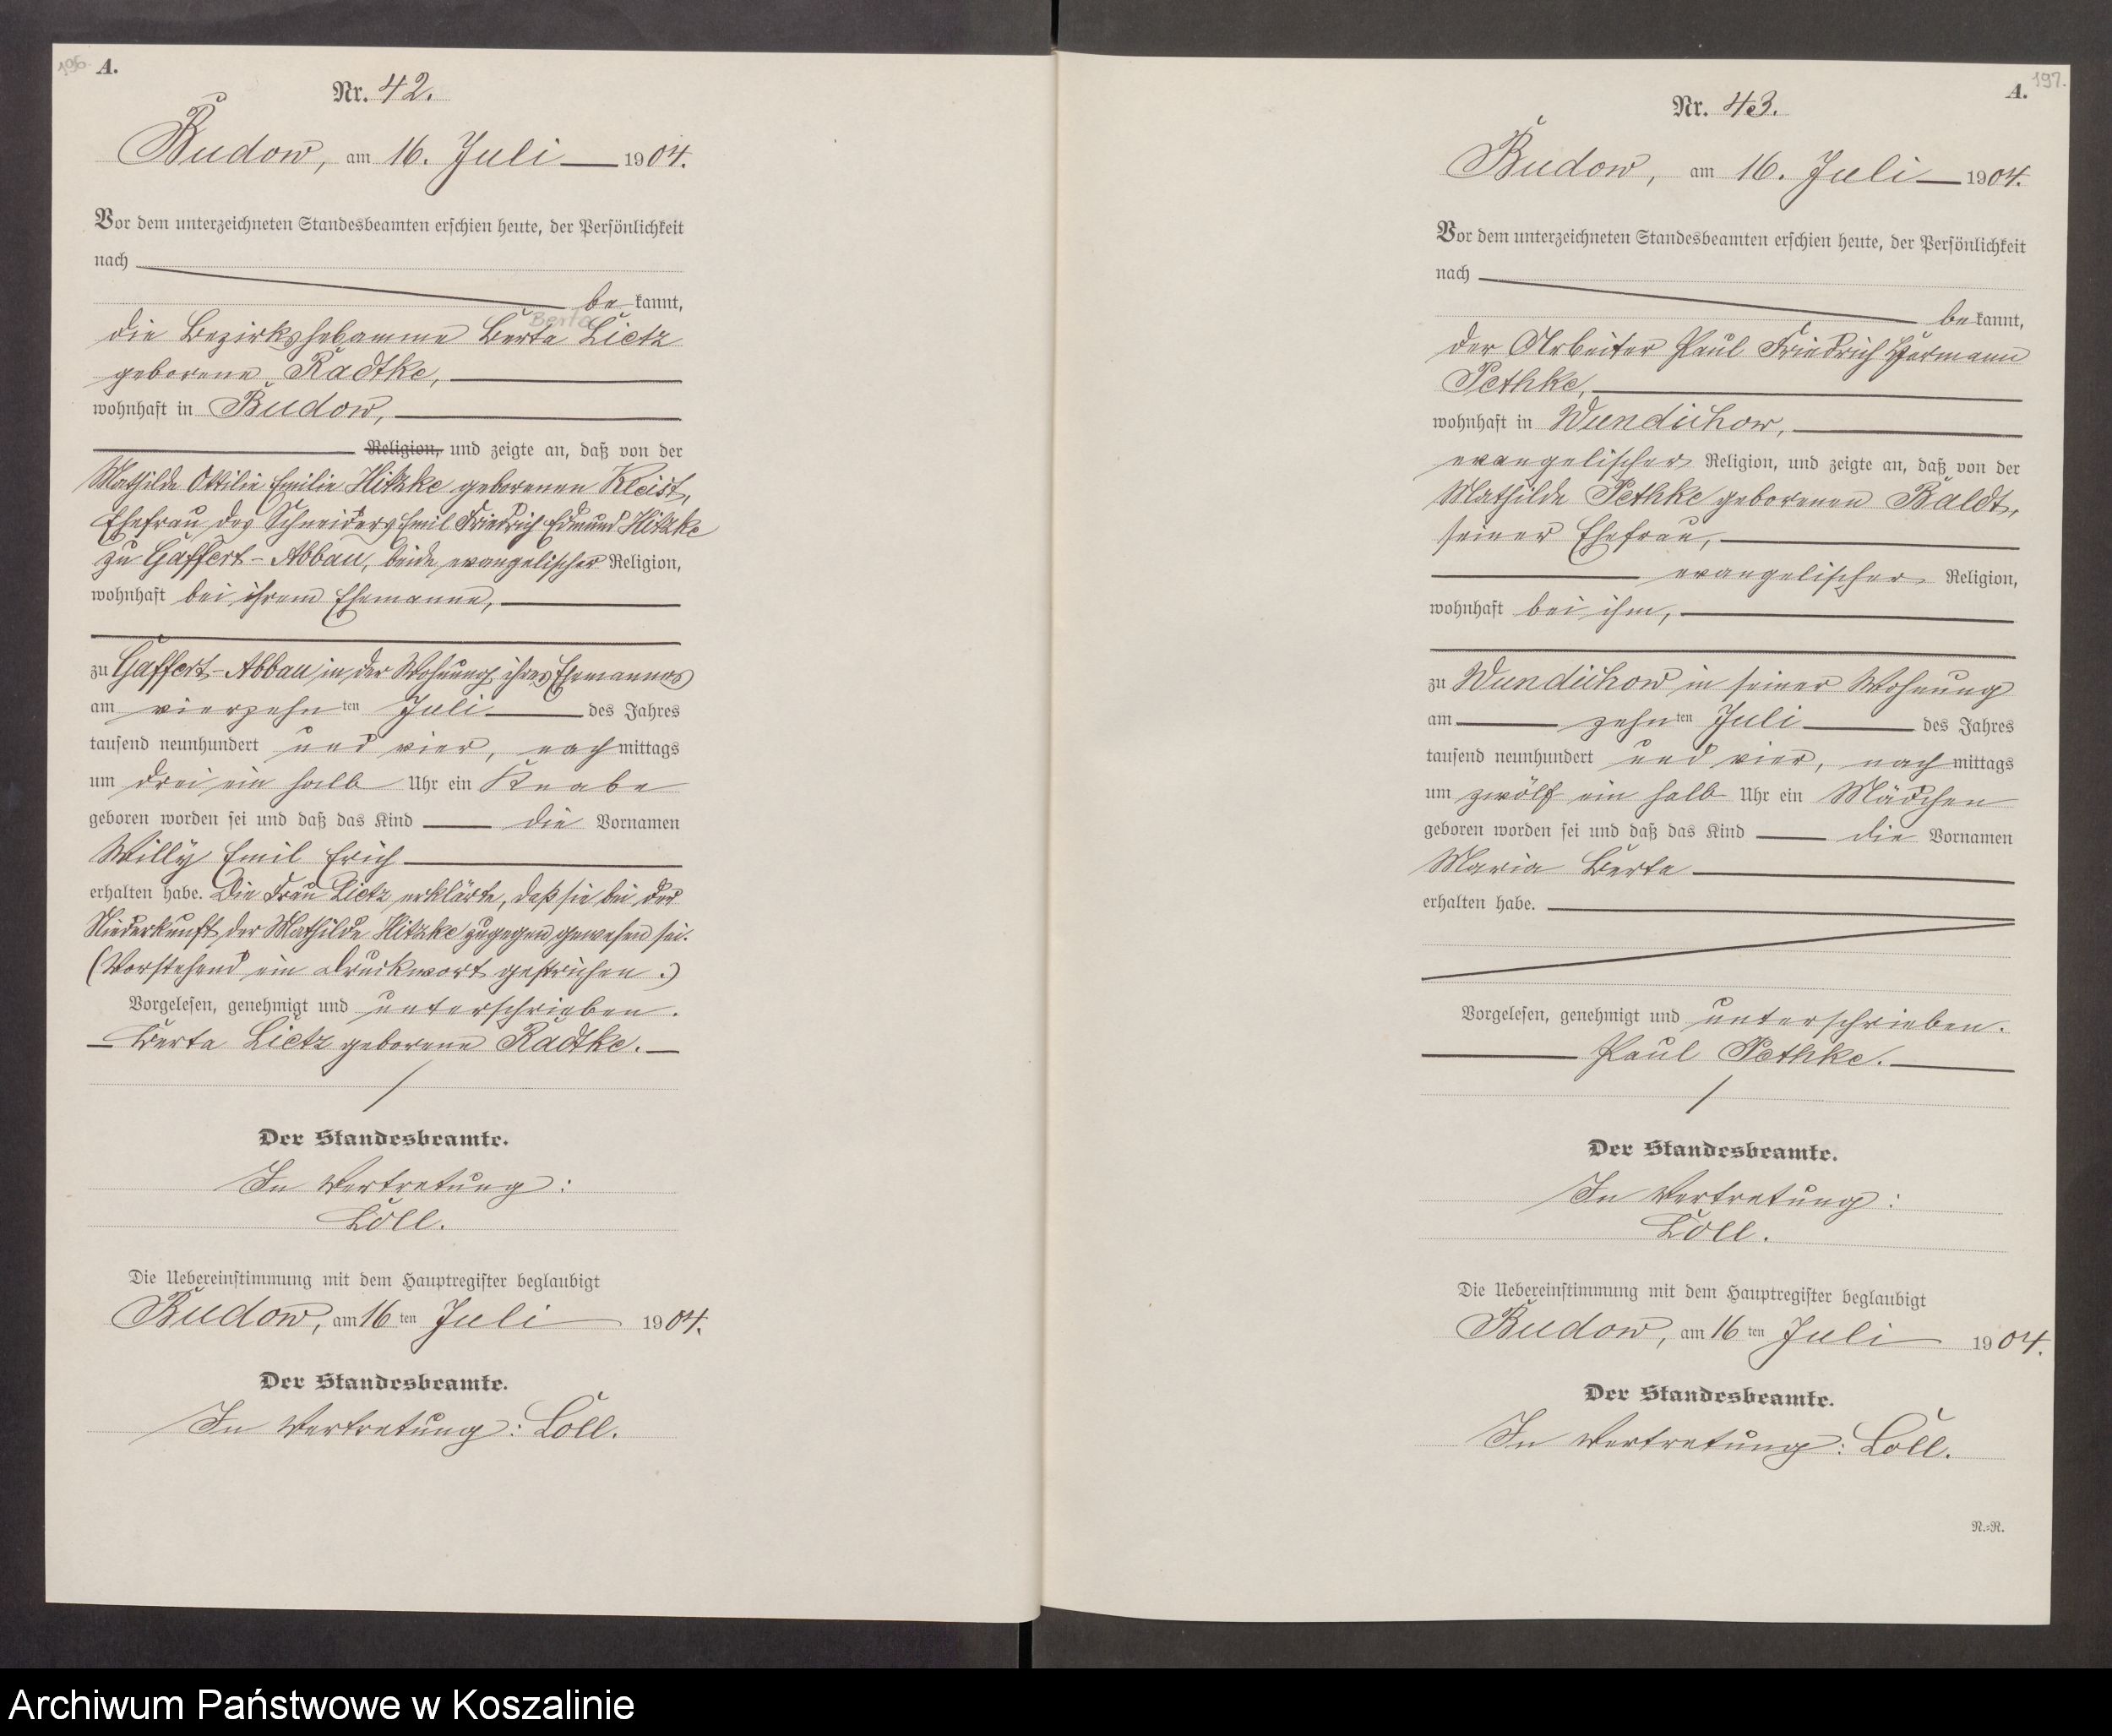 196.
A.
Nr. 42.
Budow, am 16. Juli 1904.
Vor dem unterzeichneten Standesbeamten erschien heute, der Persönlichkeit
nach
be kannt,
Berta
die Bezirkshebamme Berta Lietz
geborene Radtke,
wohnhaft in Budow,
Religion, und zeigte an, daß von der
Mathilde Ottilie Emilie Hitzke geborenen Kleist,
Ehefrau des Schneiders Emil Friedrich Edmund Hitzke
zu Gaffert-Abbau, beide evangelischer Religion,
wohnhaft bei ihrem Ehemanne,
zu Gaffert-Abbau in der Wohnung ihres Ehemannes
am vierzehn ten Juli des Jahres
tausend neunhundert und vier, nach mittags
um drei ein halb Uhr ein Knabe
geboren worden sei und daß das Kind die Vornamen
Willy Emil Erich
erhalten habe. Die Frau Lietz erklärte, daß sie bei der
Niederkunft der Mathilde Hitzke zugegen gewesen sei.
(Vorstehend ein Druckwort gestrichen.)
Vorgelesen, genehmigt und unterschrieben.
Berta Lietz geborene Radtke.
Der Standesbeamte.
In Vertretung:
Löll.
Die Uebereinstimmung mit dem Hauptregister beglaubigt
Budow, am 16 ten Juli 1904.
Der Standesbeamte.
In Vertretung: Löll.
197.
A.
Nr. 43.
Budow, am 16. Juli 1904.
Vor dem unterzeichneten Standesbeamten erschien heute, der Persönlichkeit
nach
be kannt,
der Arbeiter Paul Friedrich Hermann
Pethke,
wohnhaft in Wundichow,
evangelischer Religion, und zeigte an, daß von der
Mathilde Pethke geborenen Baldt,
seiner Ehefrau,
evangelischer Religion,
wohnhaft bei ihm,
zu Wundichow in seiner Wohnung
am zehn ten Juli des Jahres
tausend neunhundert und vier, nach mittags
um zwölf ein halb Uhr ein Mädchen
geboren worden sei und daß das Kind die Vornamen
Maria Berta
erhalten habe.
Vorgelesen, genehmigt und unterschrieben.
Paul Pethke.
Der Standesbeamte.
In Vertretung:
Löll.
Die Uebereinstimmung mit dem Hauptregister beglaubigt
Budow, am 16 ten Juli 1904.
Der Standesbeamte.
In Vertretung: Löll.
N.-R.
Archiwum Państwowe w Koszalinie